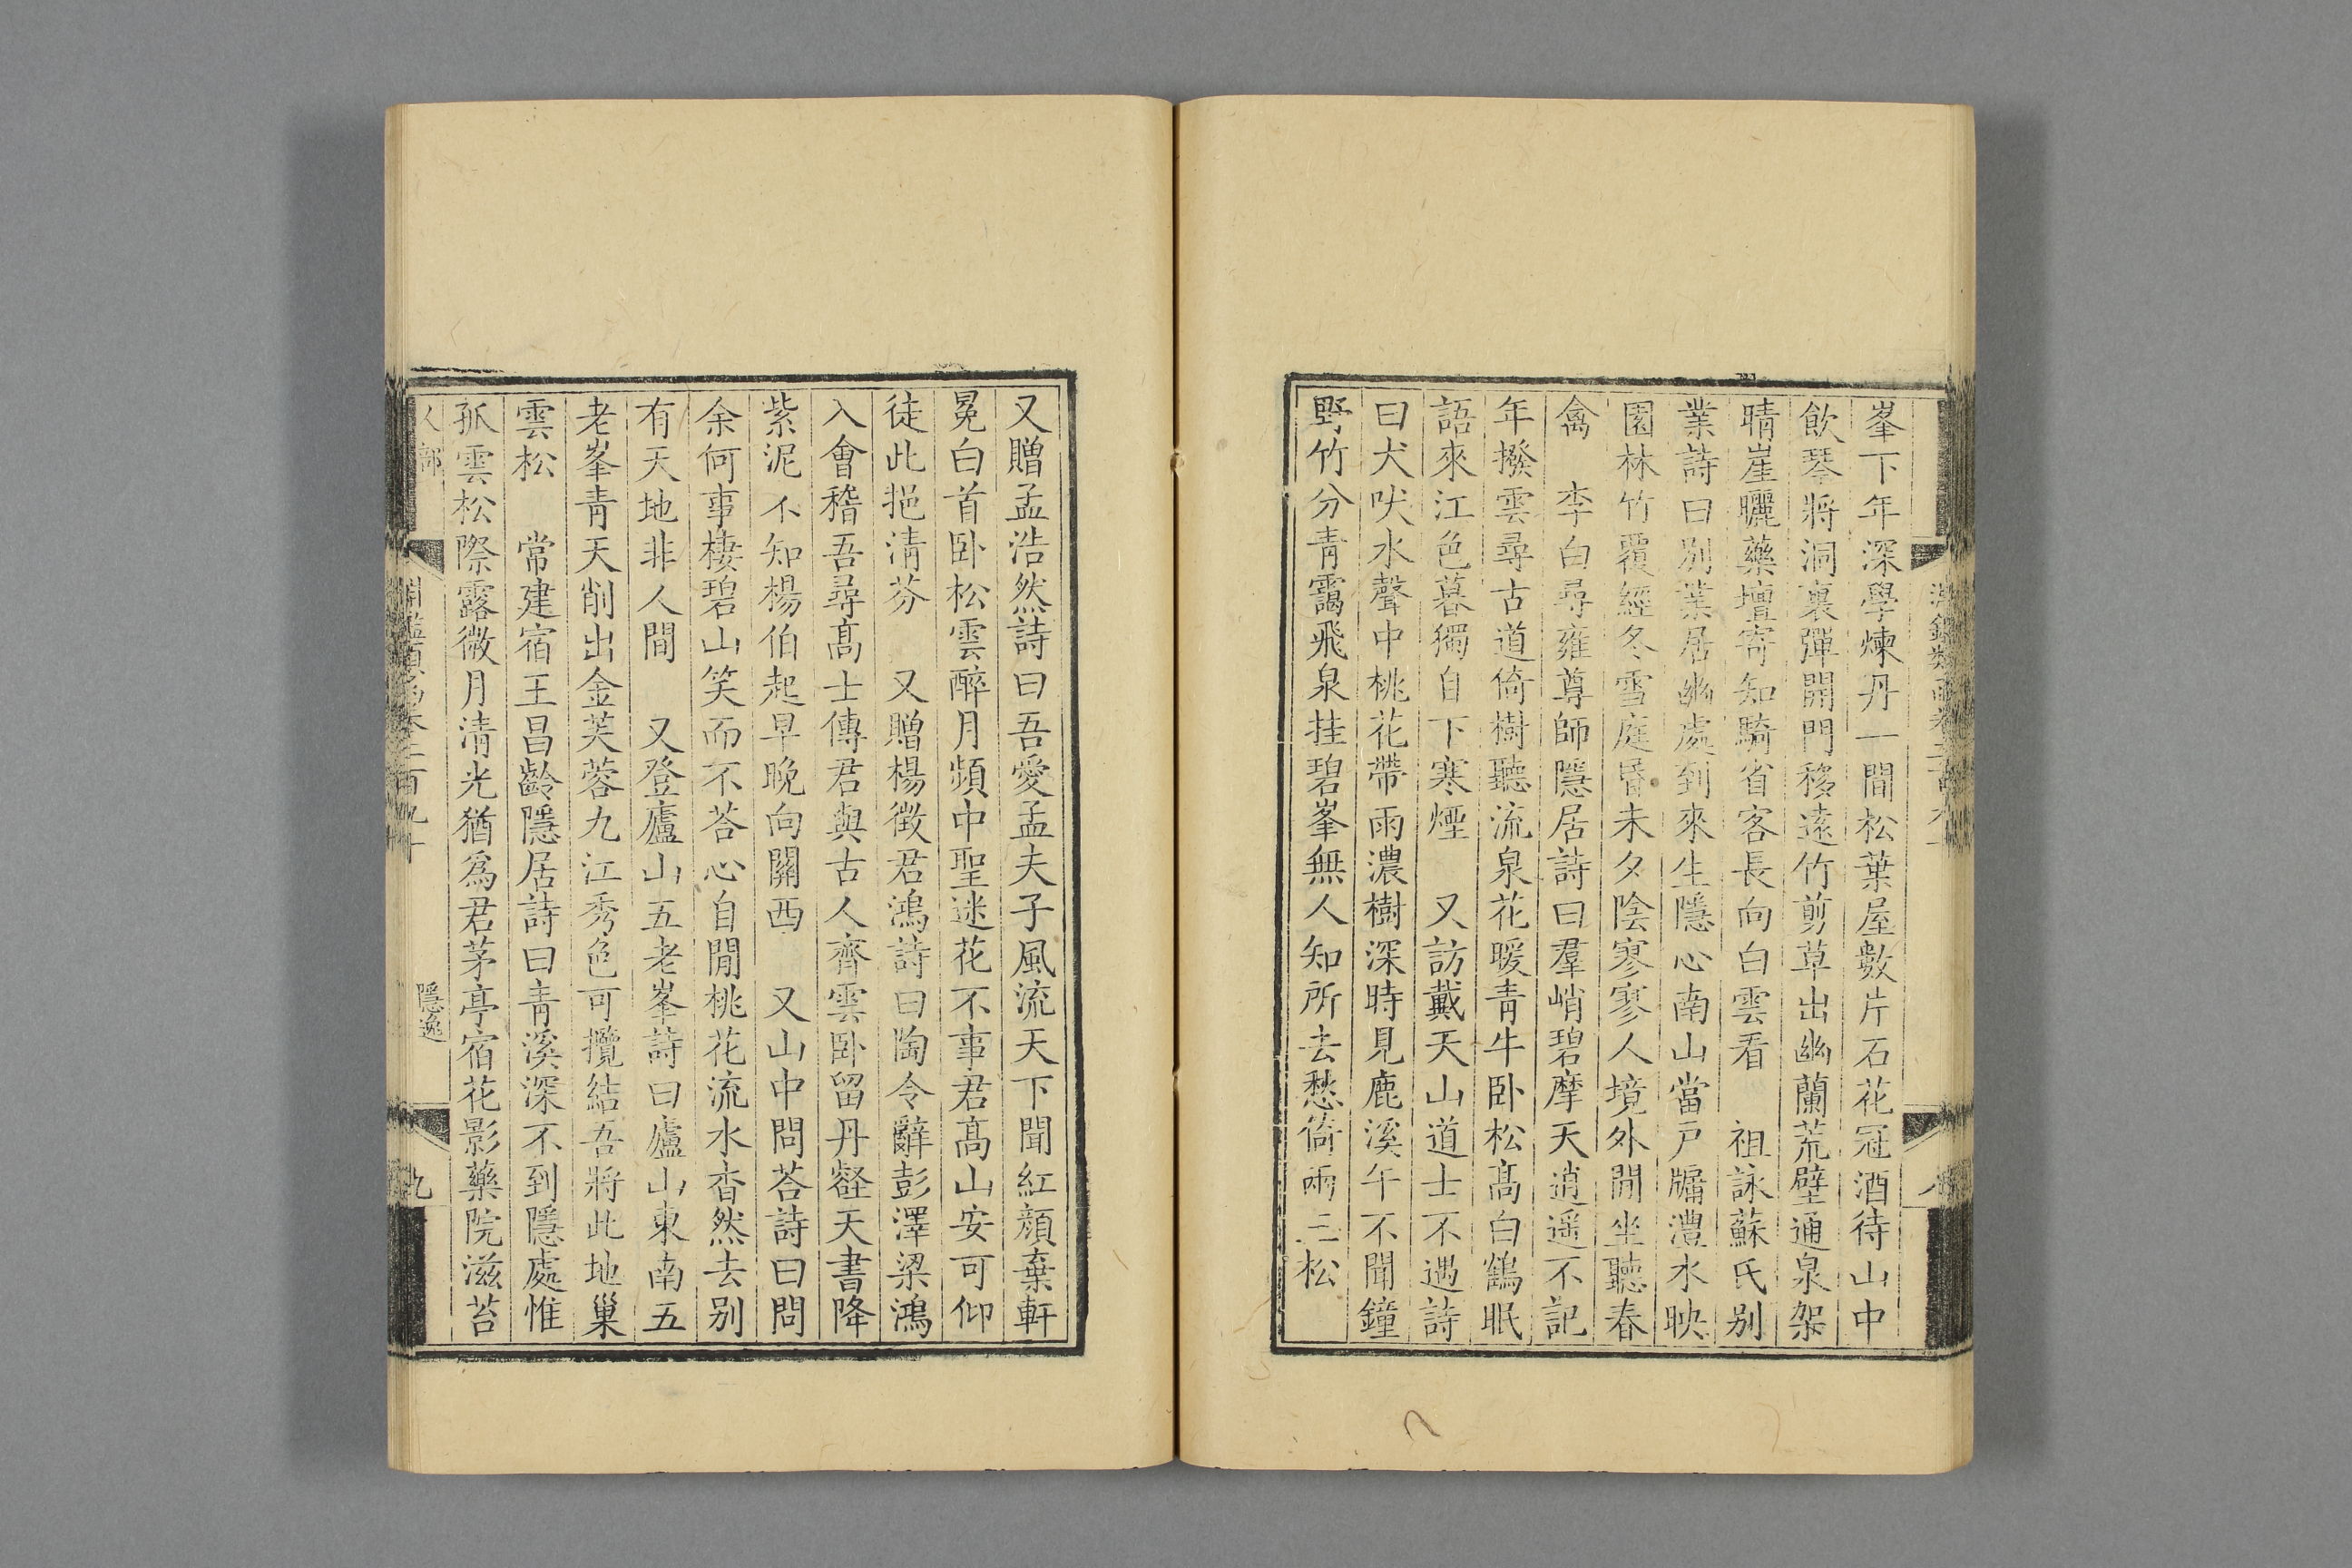 峯下年深學煉丹一間松葉屋數片石花冠酒待山中
飲琴將洞裏彈開門移遠竹剪草出幽蘭荒壁通泉架
晴崖曬藥壇寄知騎省客長向白雲看　祖詠蘇氏别
業詩曰别業居幽處到來生隱心南山當戸牖灃水映
園林竹覆經冬雪庭昏未夕陰寥寥人境外閒坐聽春
禽　李白尋雍尊師隱居詩曰羣峭碧摩天逍遥不記
年撥雲尋古道倚樹聽流泉花暖青牛卧松髙白鶴眠
語來江色暮獨自下寒煙　又訪戴天山道士不遇詩
曰犬吠水聲中桃花帶雨濃樹深時見鹿溪午不聞鐘
野竹分青靄飛泉挂碧峯無人知所去愁倚兩三松
又贈孟浩然詩曰吾愛孟夫子風流天下聞紅顔棄軒
冕白首卧松雲醉月頻中聖迷花不事君髙山安可仰
徒此挹清芬　又贈楊徵君鴻詩曰陶令辭彭澤梁鴻
入會稽吾尋髙士傳君與古人齊雲卧留丹壑天書降
紫泥不知楊伯起早晚向關西　又山中問荅詩曰問
余何事棲碧山笑而不荅心自閒桃花流水杳然去别
有天地非人間　又登廬山五老峯詩曰廬山東南五
老峯青天削出金芙蓉九江秀色可攬結吾將此地巢
雲松　常建宿王昌齡隱居詩曰青溪深不到隱處惟
孤雲松際露微月清光猶爲君茅亭宿花影藥院滋苔
人部
隱逸
九